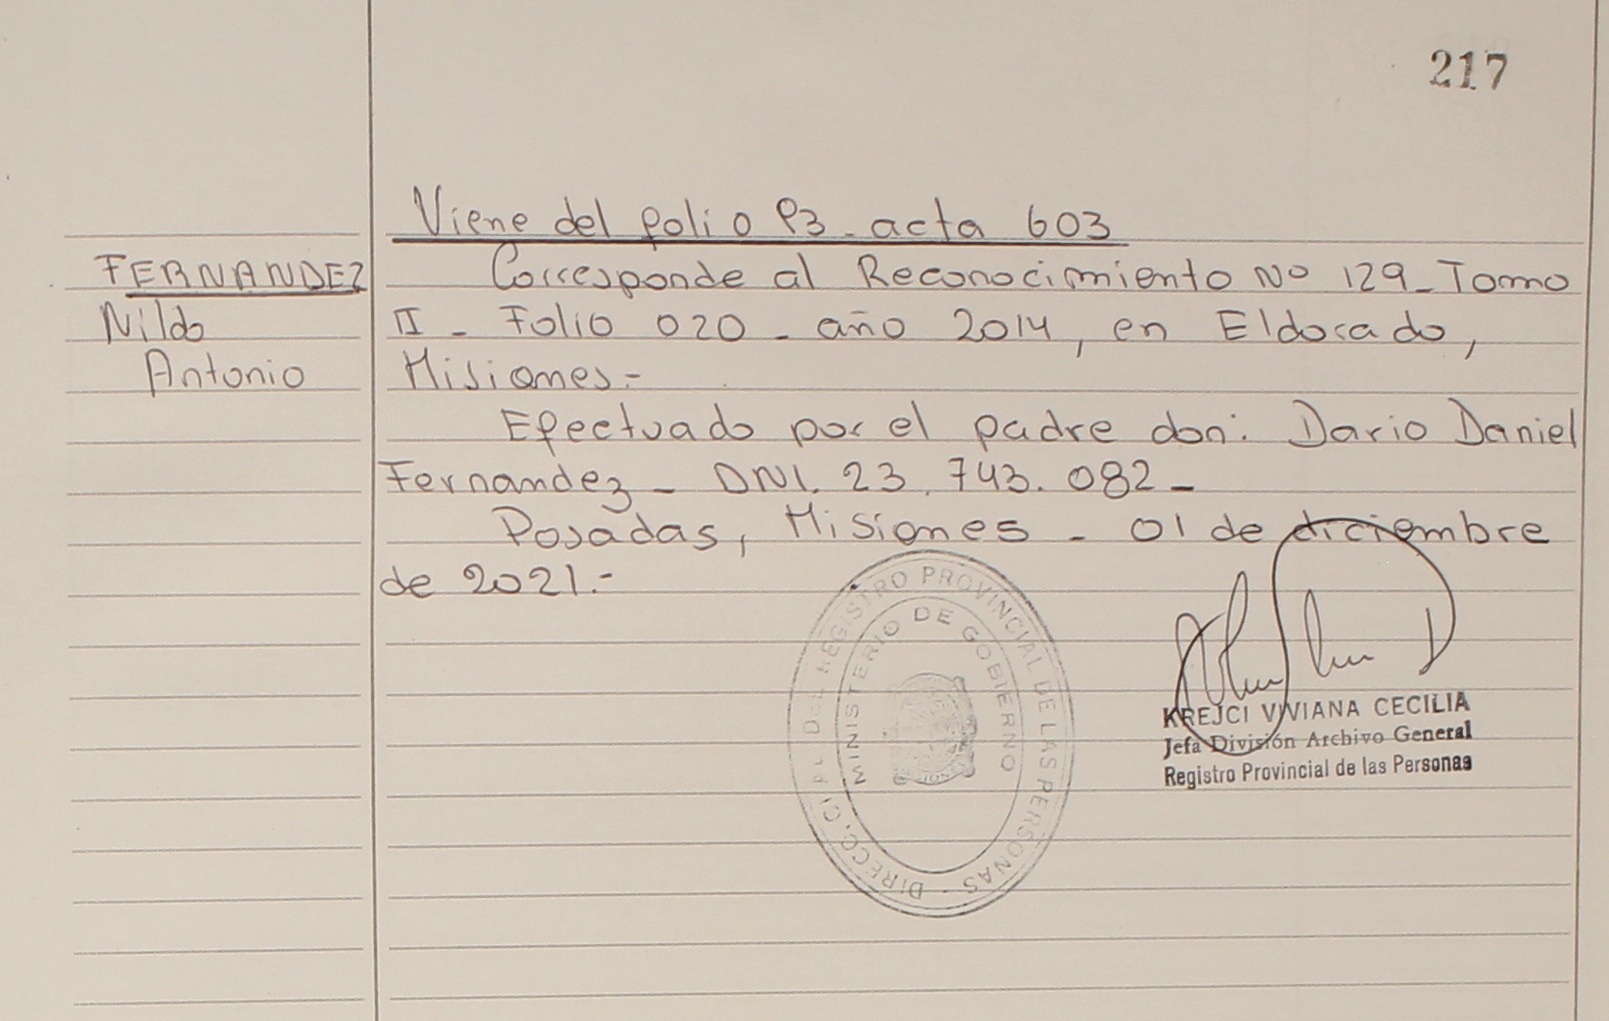 217
Viene del folio 93 - acta 603
FERNANDEZ
Nildo
Antonio
Corresponde al Reconocimiento Nº 129 - Tomo
II - Folio 020 - año 2014, en Eldorado,
Misiones.-
Efectuado por el padre don: Dario Daniel
Fernandez - DNI. 23.743.082 -
Posadas, Misiones - 01 de diciembre
de 2021.-
DIRECC. GRAL DEL REGISTRO PROVINCIAL DE LAS PERSONAS -
MINISTERIO DE GOBIERNO
KREJCI VIVIANA CECILIA
Jefa División Archivo General
Registro Provincial de las Personas